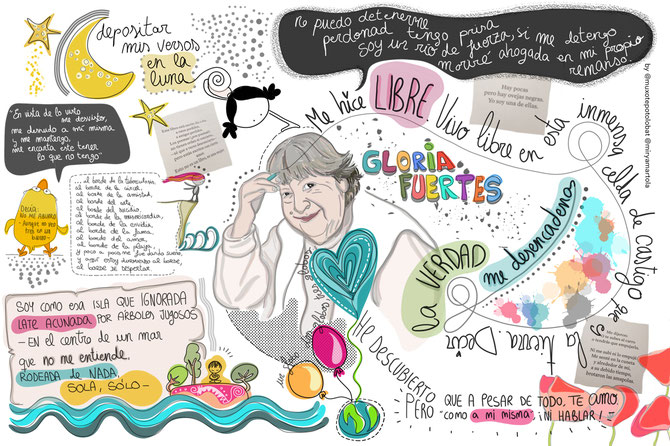 depositar
mis versos
en la
luna
No puedo detenerme
perdonad tengo prisa
Soy un río de fuerza, si me detengo
moriré ahogada en mi propio
remanso.
by @muxotepotolobat @miryamartola
"En vista de lo visto
me desvisto,
me desnudo a mí misma
y me mantengo,
me encanta este tener
lo que no tengo"
Decía:
NO ME ABURRO
Al borde de la tuberculosis,
al borde de la cárcel,
al borde de la amistad,
al borde del arte
al borde del suicidio
al borde de la misericordia,
al borde de la envidia,
al borde de la fama,
al borde del amor,
al borde de la playa,
y poco a poco me fue dando sueño,
y aquí estoy durmiendo al borde,
al borde de despertar.
Hay pocas
pero hay ovejas negras.
Yo soy una de ellas.
Me hice LIBRE Vivo libre en esta inmensa celda de castigo que es la tierra
GLORIA
FUERTES
Decir la VERDAD me desencadena
SOY COMO ESA ISLA QUE IGNORADA
LATE ACUNADA POR ÁRBOLES JUGOSOS
- EN el centro de un mar
que no me entiende.
RODEADA de NADA,
SOLA, SÓLO -
HE DESCUBIERTO
PERO
QUE A PESAR DE TODO, TE amo
"como a mi misma ¡NI HABLAR!"